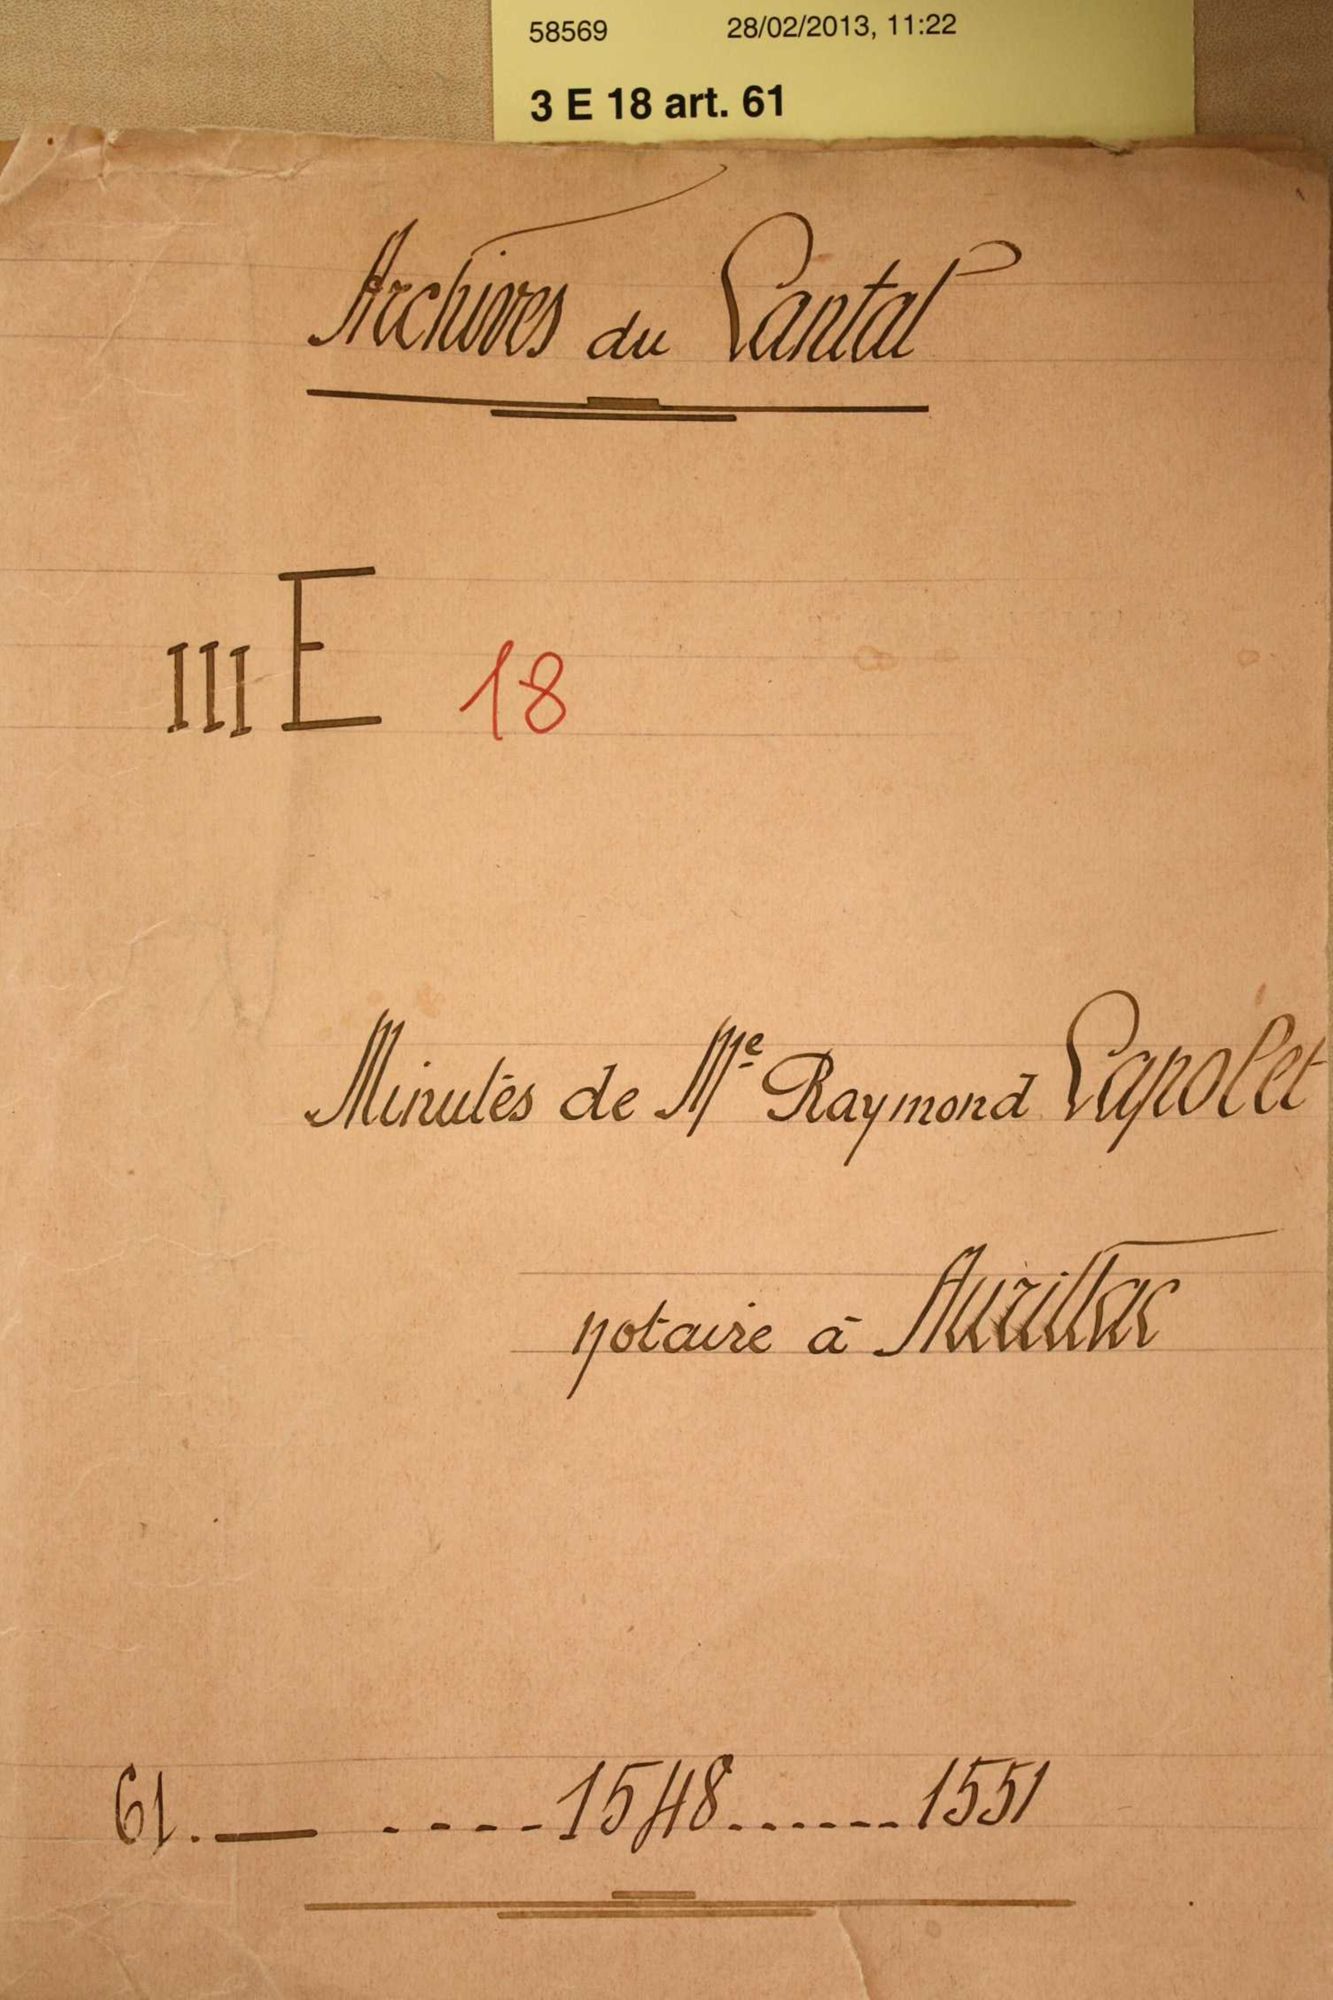 58569 28/02/2013, 11:22
3 E 18 art. 61
Archives du Cantal
III E 18
Minutes de Me Raymond Capolet
notaire à Aurillac
61. — ---- 1548 ...... 1551